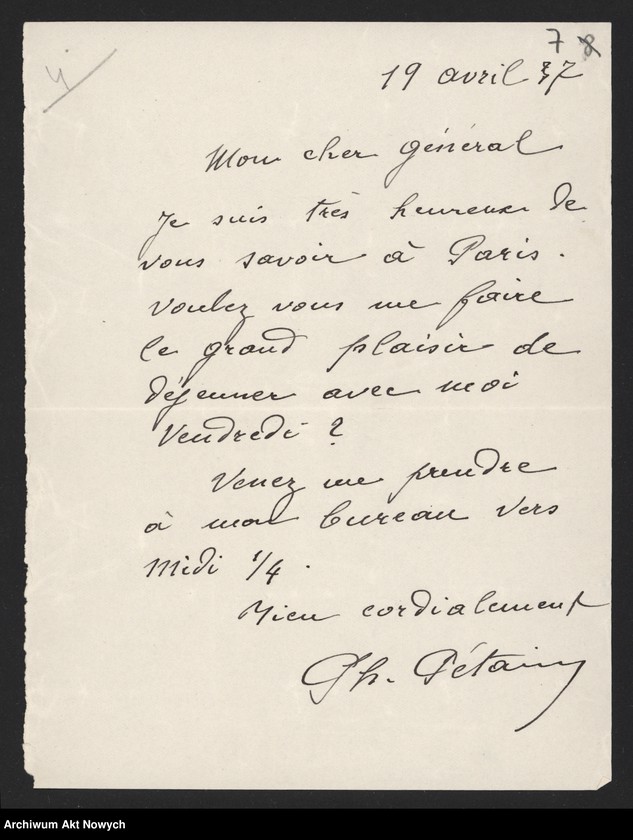 4
7 8
19 avril 37
Mon cher général
Je suis très heureux de
vous savoir à Paris.
Voulez vous me faire
le grand plaisir de
déjeuner avec moi
Vendredi ?
Venez me prendre
à mon bureau vers
midi 1/4.
Bien cordialement
Ph. Pétain
Archiwum Akt Nowych